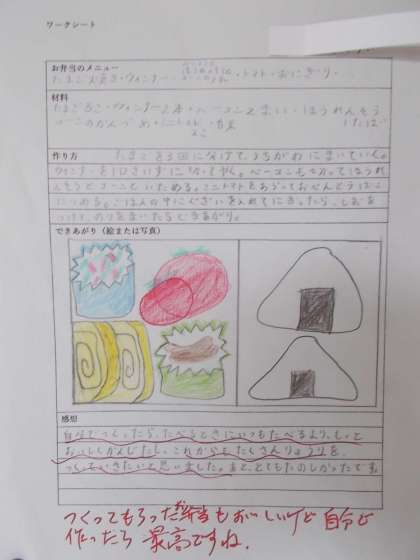 ワークシート
お弁当のメニュー
たまごやき・ウィンナー・トマト・おにぎり・
材料
たまご3こ・ウィンナー2本・ベーコン2まい・ほうれんそう
コーンのかんづめ・ミニトマト
作り方 たまごを3回に分けて、うちがわにまいていく。
ウィンナーを1口さいずに切ってやく。ベーコンもきってほうれ
んそうとコーンといためる。ミニトマトをあらっておべんとうばこ
につめる。ごはんの中にぐざいを入れてにぎったら、しおを
つけて、のりをまいたらできあがり。
できあがり（絵または写真）
感想
自分でつくったら、たべるときにいつもたべるより、もっと
おいしくかんじたし、これからもたくさんりょうりを
つくっていきたいと思いました。あと、とてもたのしかったです
つくってもらった弁当もおいしいけど自分で
作ったら最高ですね。